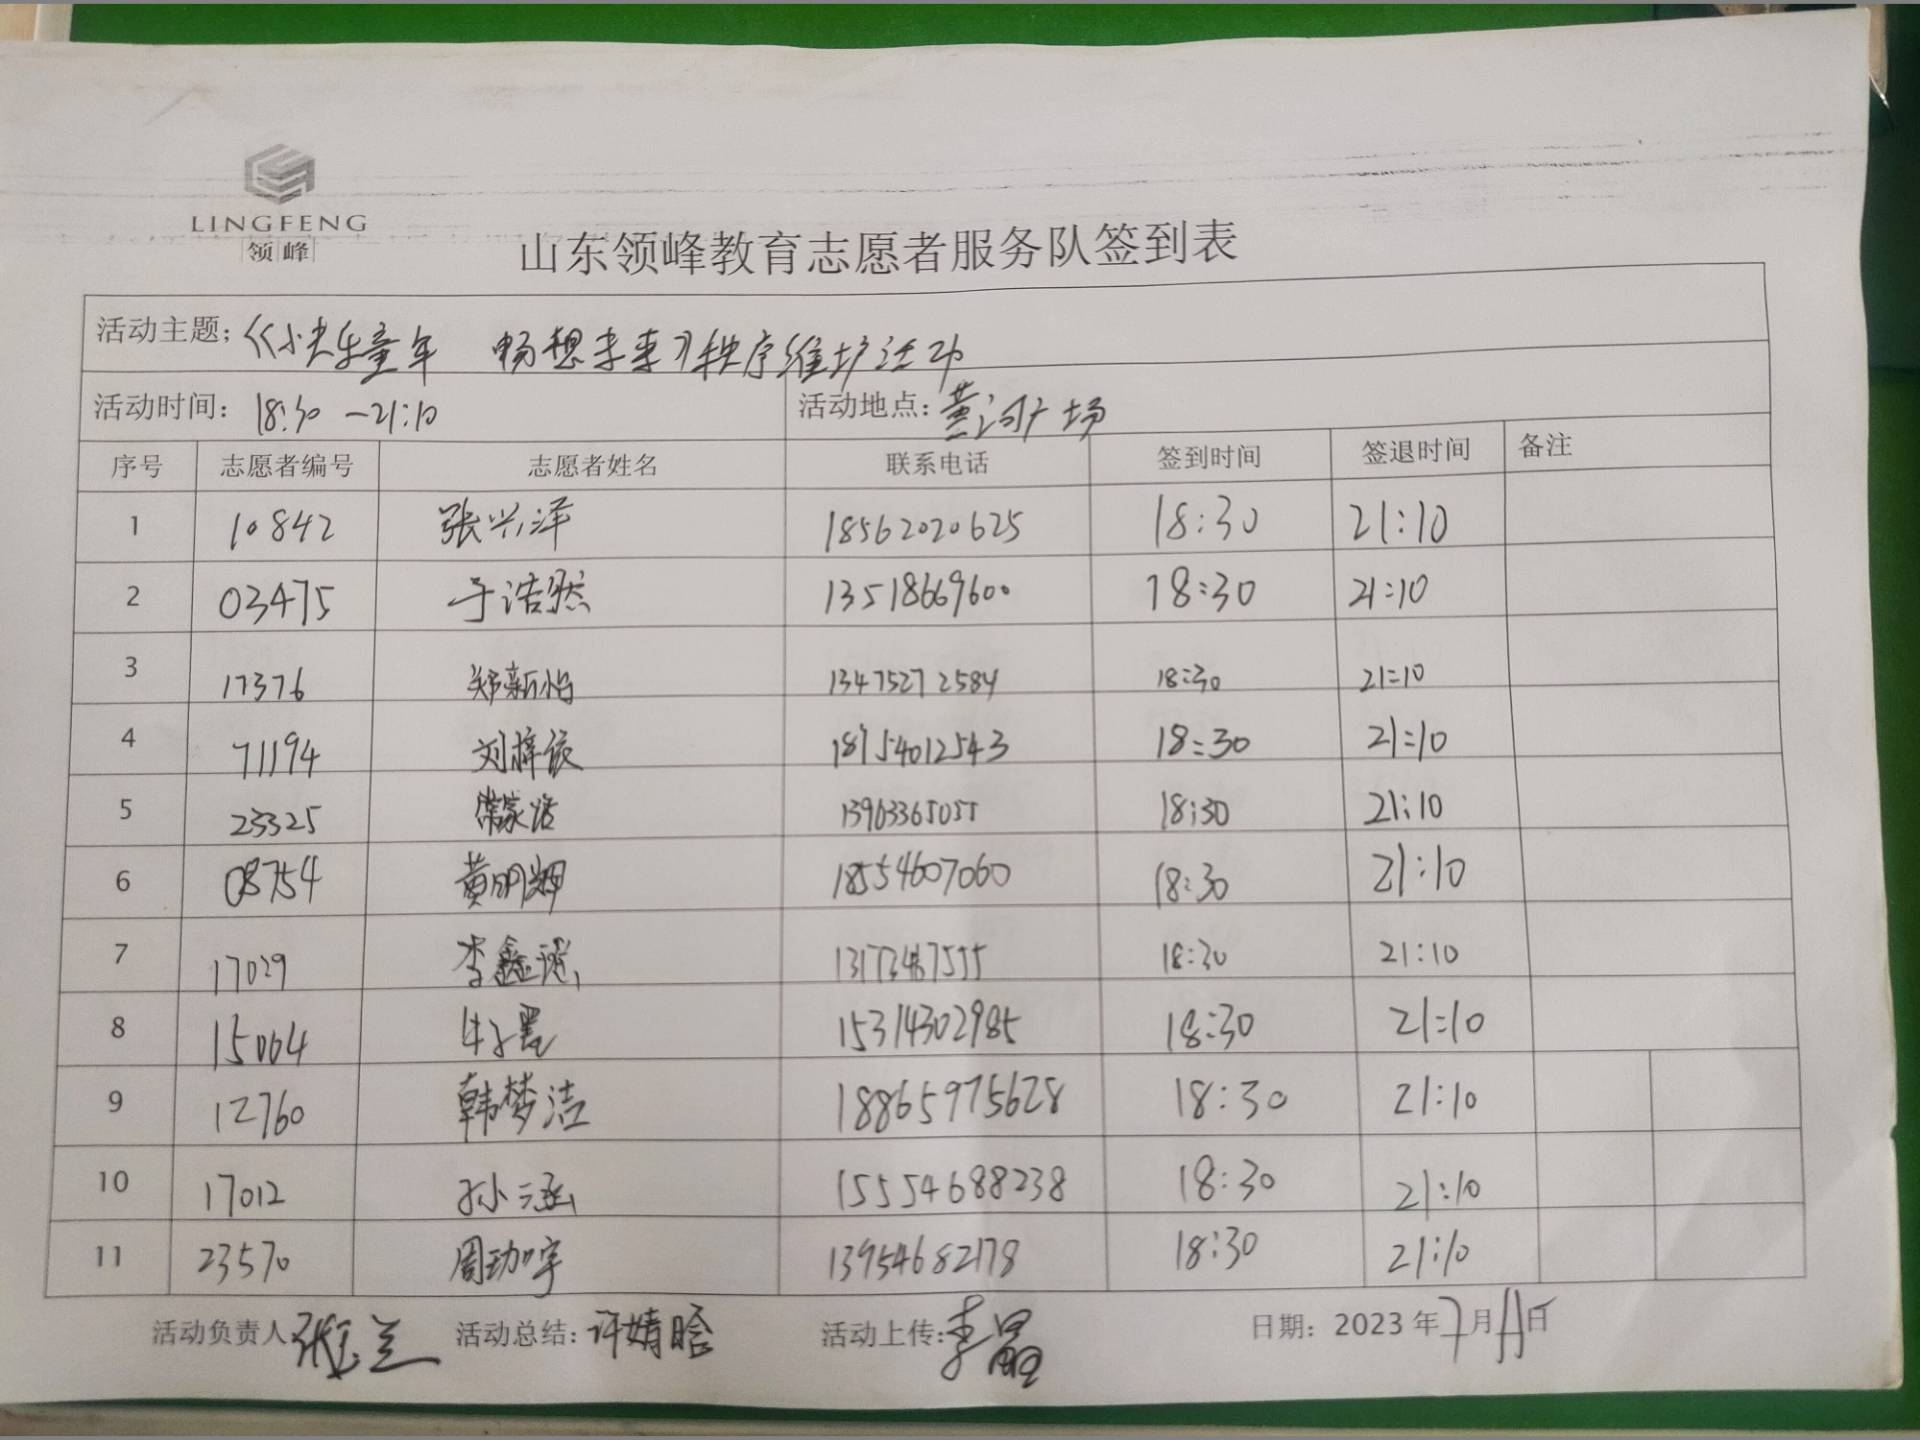 LINGFENG
领峰
山东领峰教育志愿者服务队签到表
活动主题：《快乐童年 畅想未来》秩序维护活动
活动时间：18:30—21:10 活动地点：黄河广场
序号 志愿者编号 志愿者姓名 联系电话 签到时间 签退时间 备注
1 10842 张兴泽 18562020625 18:30 21:10
2 03475 于浩然 13518669600 18:30 21:10
3 17376 郑新怡 13475272584 18:30 21:10
4 71194 刘梓依 18954012543 18:30 21:10
5 23325 常家浩 13963365055 18:30 21:10
6 08754 黄明 18554607060 18:30 21:10
7 17029 李鑫 18:30 21:10
8 15064 牛子墨 15314302985 18:30 21:10
9 12760 韩梦洁 18865975628 18:30 21:10
10 17012 孙一涵 15554688238 18:30 21:10
11 23570 周珈宇 13954682178 18:30 21:10
活动负责人 张 兰 活动总结：许婧晗 活动上传：李晶 日期：2023年7月11日